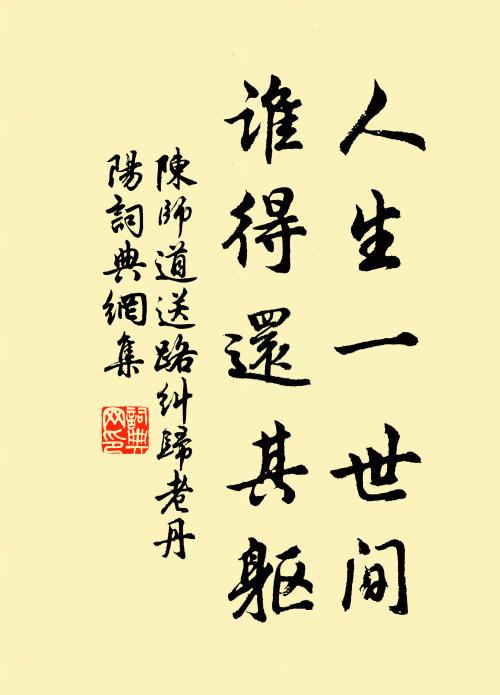 人生一世间
谁得還其躯
陳師道送路糾歸老丹
陽詞典網集
詞典网印